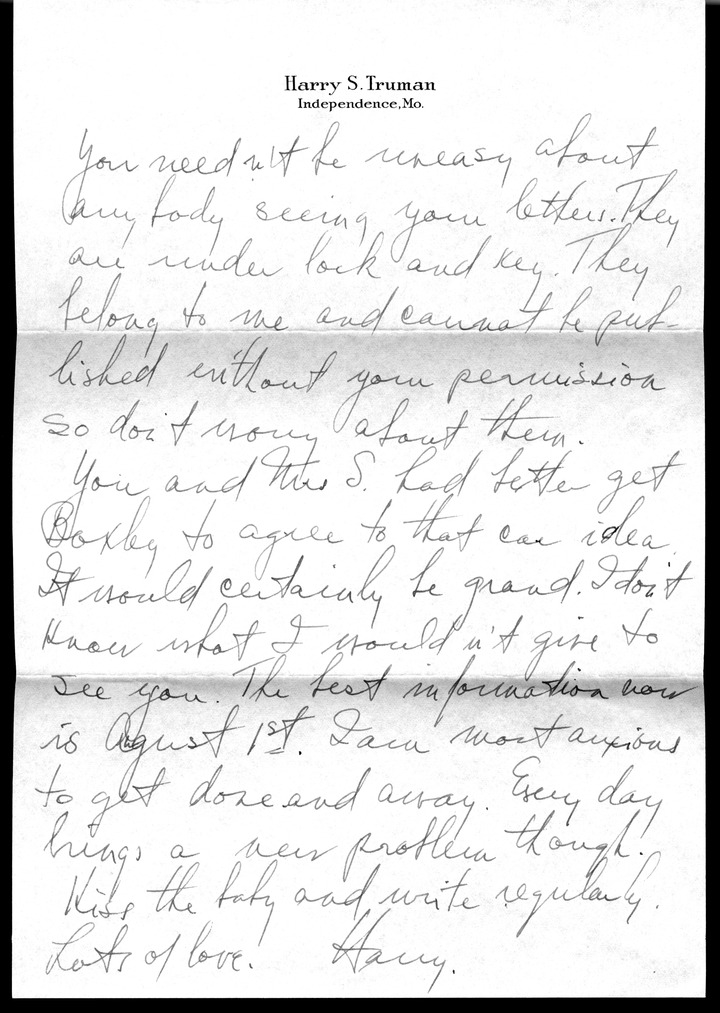 Harry S. Truman
Independence, Mo.
You needn't be uneasy about
anybody seeing your letters. They
are under lock and key. They
belong to me and cannot be pub-
lished without your permission
so don't worry about them.
You and Mrs S. had better get
Boxley to agree to that car idea.
It would certainly be grand. I don't
know what I would n't give to
see you. The best information now
is August 1st. I am most anxious
to get done and away. Every day
brings a new problem though.
Kiss the baby and write regularly.
Lots of love. Harry.